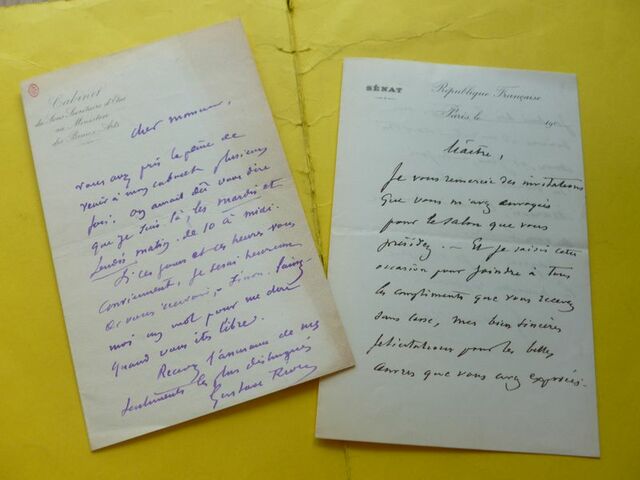 Cabinet
du Sous-Secrétaire d'État
au Ministère
des Beaux-Arts
Cher monsieur,
vous avez pris la peine de
venir à mon cabinet plusieurs
fois. On aurait dû vous dire
que je suis là, les mardis et
Jeudis matin. de 10 à midi.
Si ces jours et ces heures vous
conviennent, je serai heureux
de vous recevoir; - Sinon.
moi un mot pour me dire
quand vous êtes libre.
Recevez l'assurance de mes
sentiments les plus distingués
Gustave
SÉNAT
République Française
Paris, le 190
Maître,
Je vous remercie des invitations
que vous m'avez envoyées
pour le salon que vous
présidez. - Et je saisis cette
occasion pour joindre à tous
les compliments que vous recevez
sans cesse, mes bien sincères
félicitations pour les belles
œuvres que vous avez exposées.